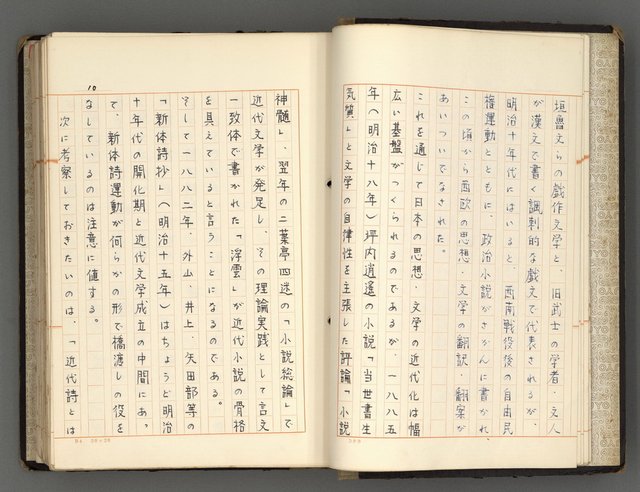 垣魯文らの戯作文学と、旧武士の学者・文人
が漢文で書く諷刺的な戯文で代表されるが、
明治十年代にはいると、西南戦役後の自由民
権運動とともに、政治小説がさかんに書かれ、
この頃から西欧の思想、文学の翻訳、翻案が
あいついでなされた。
これを通じて日本の思想・文学の近代化は幅
広い基盤がつくられるのであるが、一八八五
年（明治十八年）坪内逍遥の小説「当世書生
気質」と文学の自律性を主張した評論「小説
神髄」、翌年の二葉亭四迷の「小説総論」で
近代文学が発足し、その理論実践として言文
一致体で書かれた「浮雲」が近代小説の骨格
を具えていると言うことになるのである。
そして一八八二年、外山、井上、矢田部等の
「新体詩抄」（明治十五年）はちょうど明治
十年代の開化期と近代文学成立の中間にあっ
て、新体詩運動が何らかの形で橋渡しの役を
なしているのは注意に値する。
次に考察しておきたいのは、「近代詩とは
10